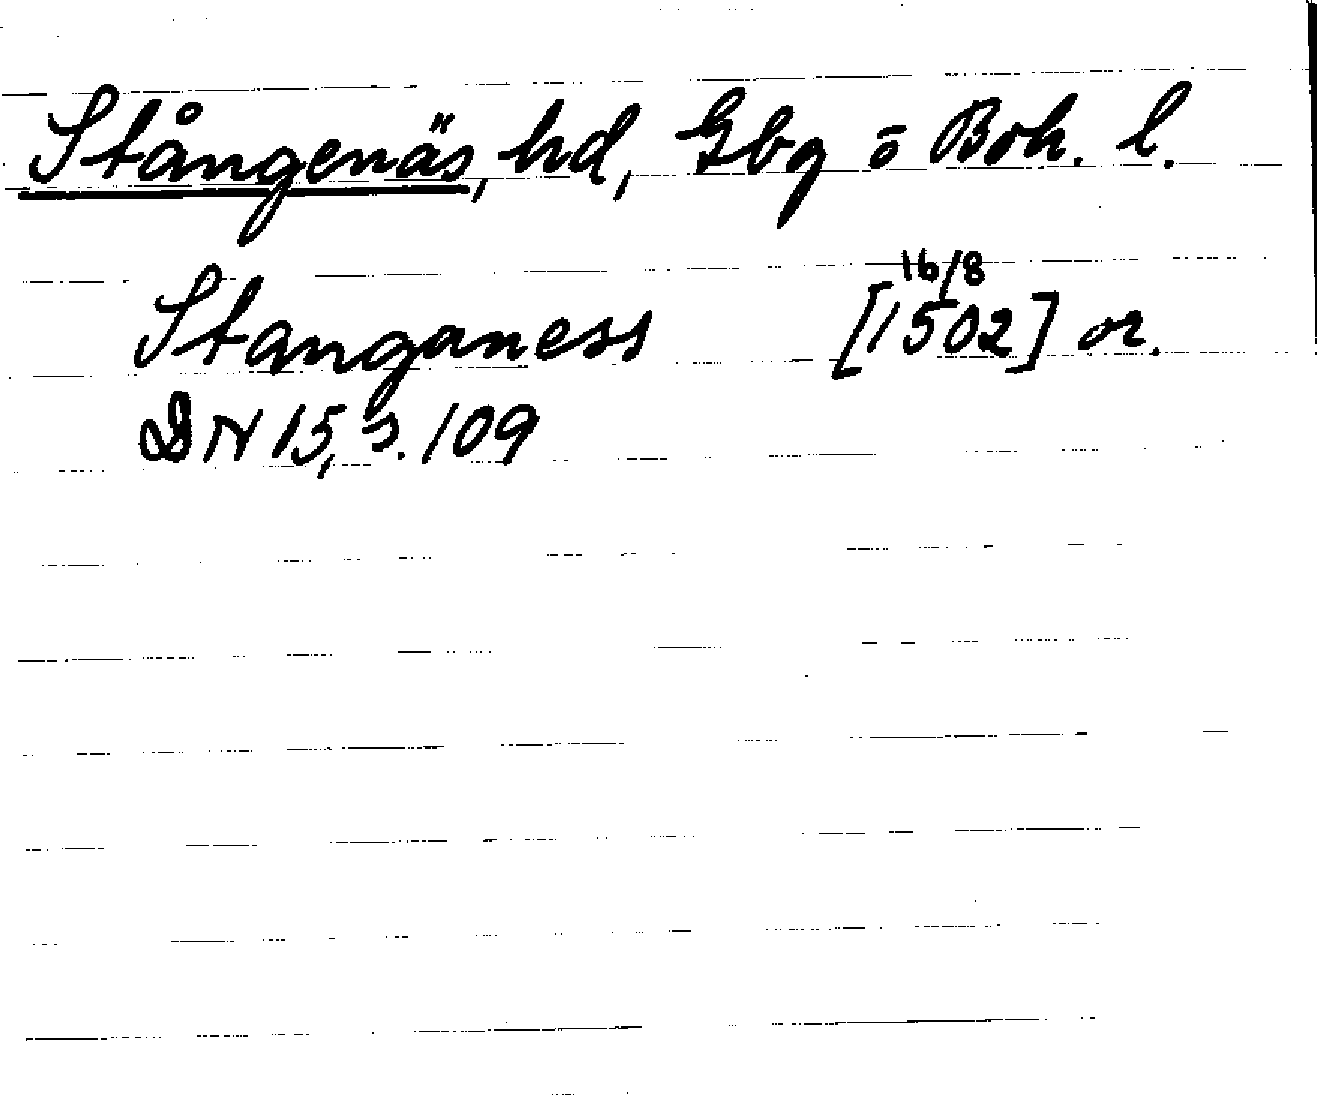 Stångenäs, hd, Gbg o Boh. l.
Stanganess [16/8 1502] or.
DN 15, s. 109